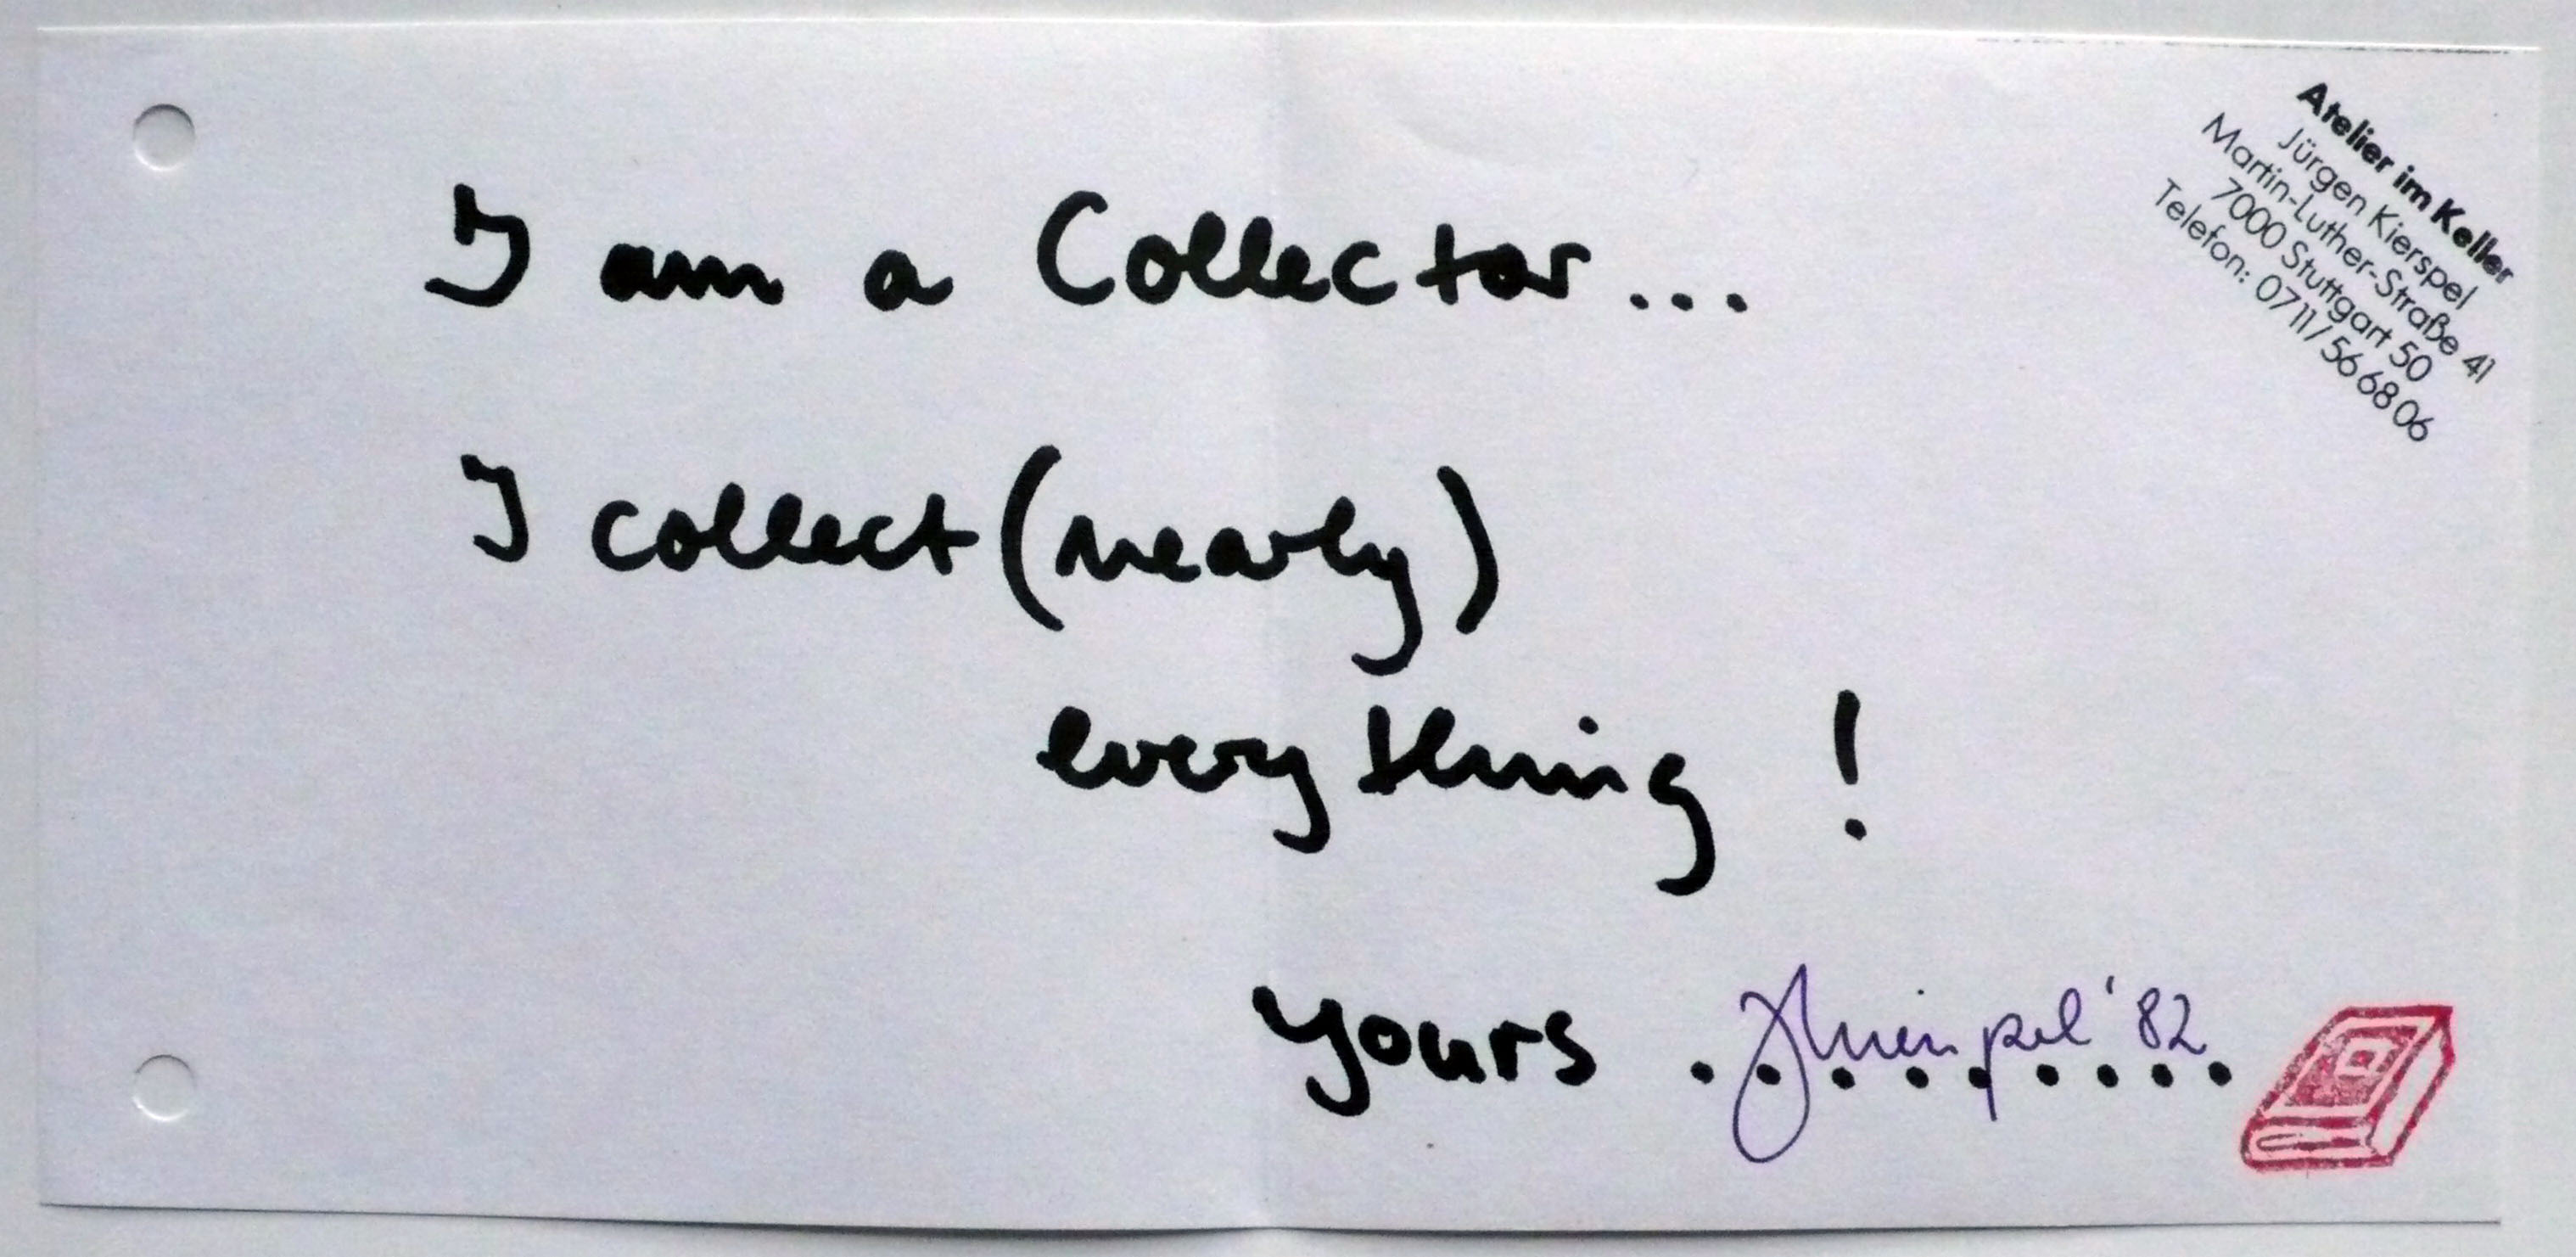 Atelier im Keller
Jürgen Kierspel
Martin-Luther-Straße 41
7000 Stuttgart 50
Telefon: 0711/566806
I am a Collector...
I collect (nearly)
everything !
yours .........
'82